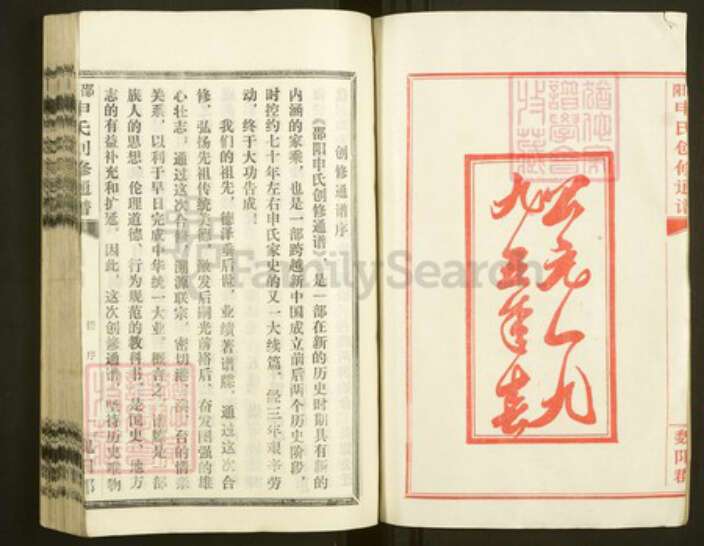 公元一九
九五年春
阳申氏创修通谱
魏阳郡
创修通谱序
《邵阳申氏创修通谱》，是一部在新的历史时期具有新的
内涵的家乘，也是一部跨越新中国成立前后两个历史阶段，
时控约七十年左右申氏家史的又一大续篇。经三年艰辛劳
动，终于大功告成。
我们的祖先，德泽垂后世，业绩著谱牒。通过这次合
修，弘扬先祖传统美德，激发后嗣光前裕后，奋发图强的雄
心壮志。通过这次合修，溯源联宗，密切港、澳、台的情亲
关系，以利于早日完成中华统一大业。概言之，谱牒是一部
族人的思想、伦理道德、行为规范的教科书，是国史、地方
志的有益补充和扩延。因此，这次创修通谱，坚持历史唯物
邵申氏创修通谱
谱序
FamilySearch